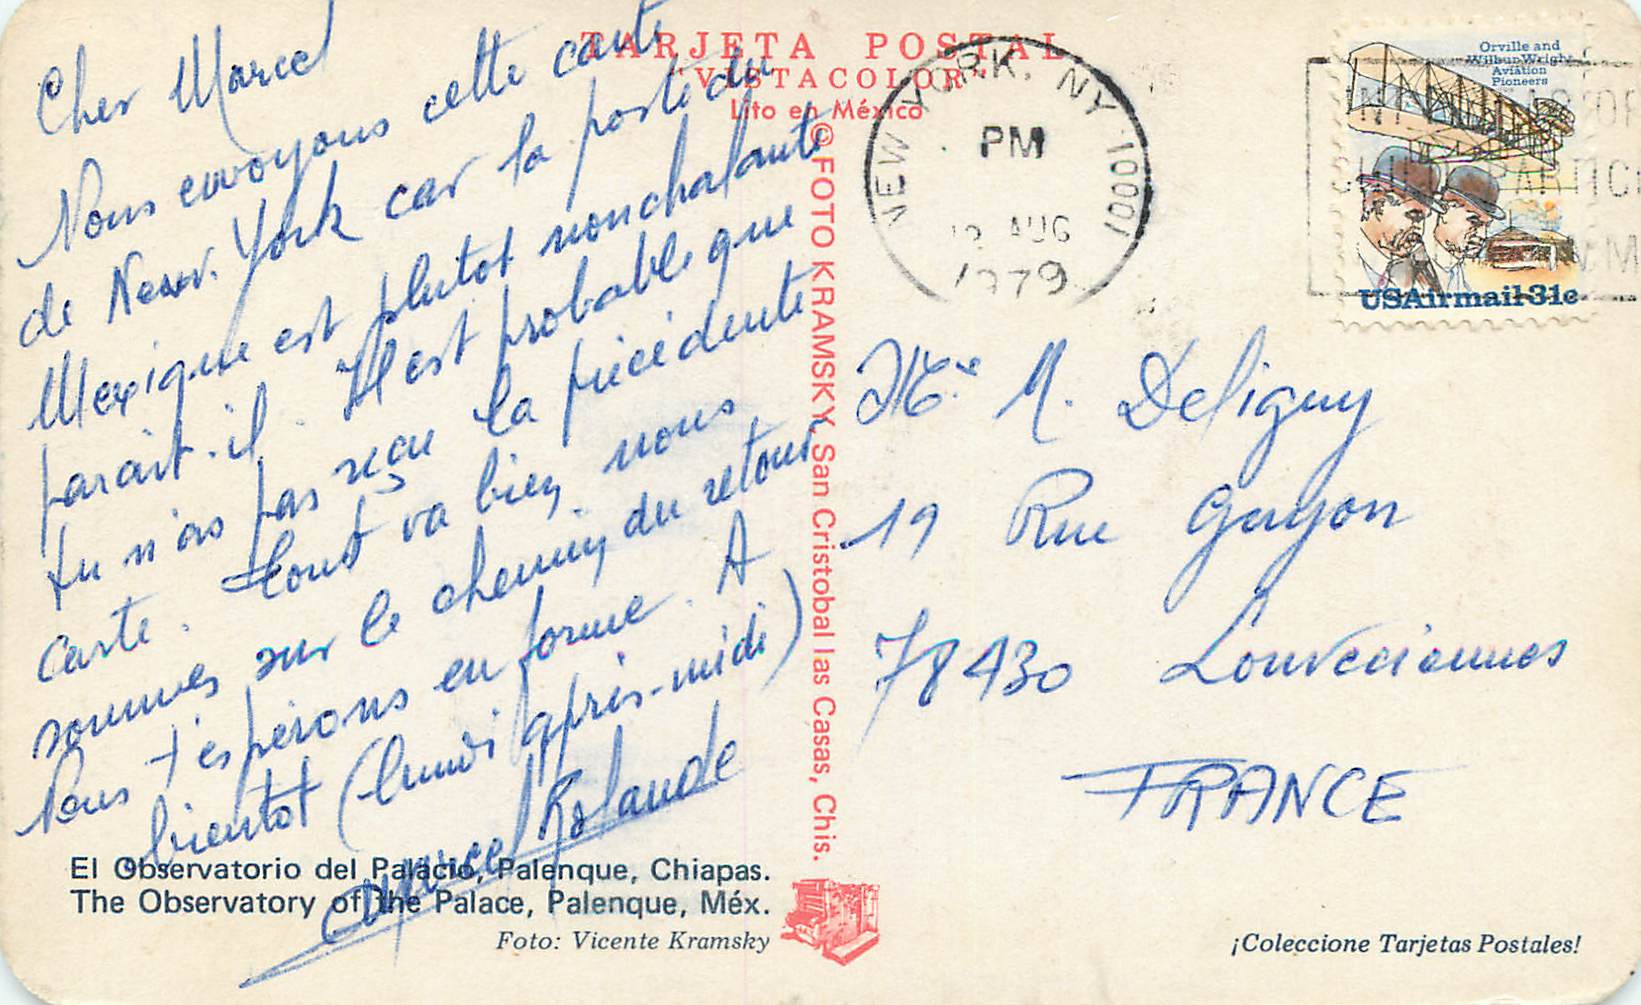 TARJETA POSTAL
"VISTACOLOR"
Lito en México
© FOTO KRAMSKY, San Cristobal las Casas, Chis.
Cher Marcel
Nous envoyons cette carte
de New-York car la poste du
Mexique est plutot nonchalante
parait-il. Il est probable que
tu n'as pas reçu la précédente
carte. Tout va bien, nous
sommes sur le chemin du retour
Nous t'espérons en forme. A
bientot (lundi après-midi)
Rolande
El Observatorio del Palacio, Palenque, Chiapas.
The Observatory of the Palace, Palenque, Méx.
Foto: Vicente Kramsky
NEW YORK, NY 10001
PM
AUG
1979
Orville and
Wilbur Wright
Aviation
Pioneers
USAirmail 31c
M. Deligny
19 Rue Guyon
78430 Louveciennes
FRANCE
¡Coleccione Tarjetas Postales!